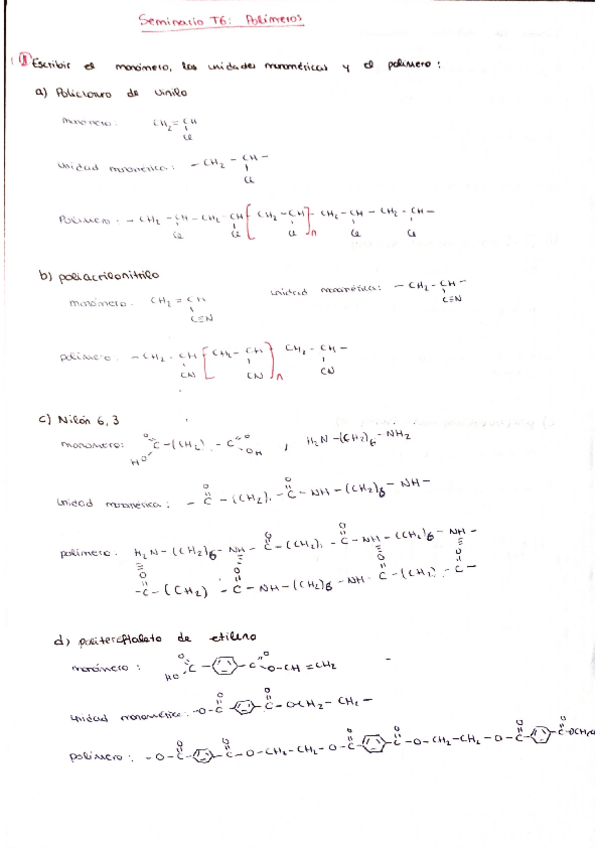 Seminario T6: Polímeros
1) Escribir el monómero, las unidades monoméricas y el polímero:
a) Policloruro de vinilo
monómero: CH₂=CH
Cl
Unidad monomérica: - CH₂ - CH -
Cl
Polímero: - CH₂ - CH - CH₂ - CH [ CH₂ - CH ]n - CH₂ - CH - CH₂ - CH -
Cl Cl Cl Cl Cl
b) poliacrilonitrilo
monómero: CH₂ = CH
C≡N
unidad monomérica: - CH₂ - CH -
C≡N
polímero: - CH₂ - CH [ CH₂ - CH ]n CH₂ - CH -
CN CN CN
c) Nilón 6,3
monómero: O HO C - (CH₂) - C = O OH , H₂N - (CH₂)₆ - NH₂
unidad monomérica: - C - (CH₂) - C - NH - (CH₂)₆ - NH -
O O
polímero: H₂N - (CH₂)₆ - NH - C - (CH₂) - C - NH - (CH₂)₆ - NH -
O O
O O O O
- C - (CH₂) - C - NH - (CH₂)₆ - NH - C - (CH₂) - C -
d) politereftalato de etileno
monómero: O HO C - C O O - CH = CH₂
unidad monomérica: - O - C - C - O - CH₂ - CH₂ -
O O
polímero: - O - C - C - O - CH₂ - CH₂ - O - C - C - O - CH₂ - CH₂ - O - C - C -
O O O O O O